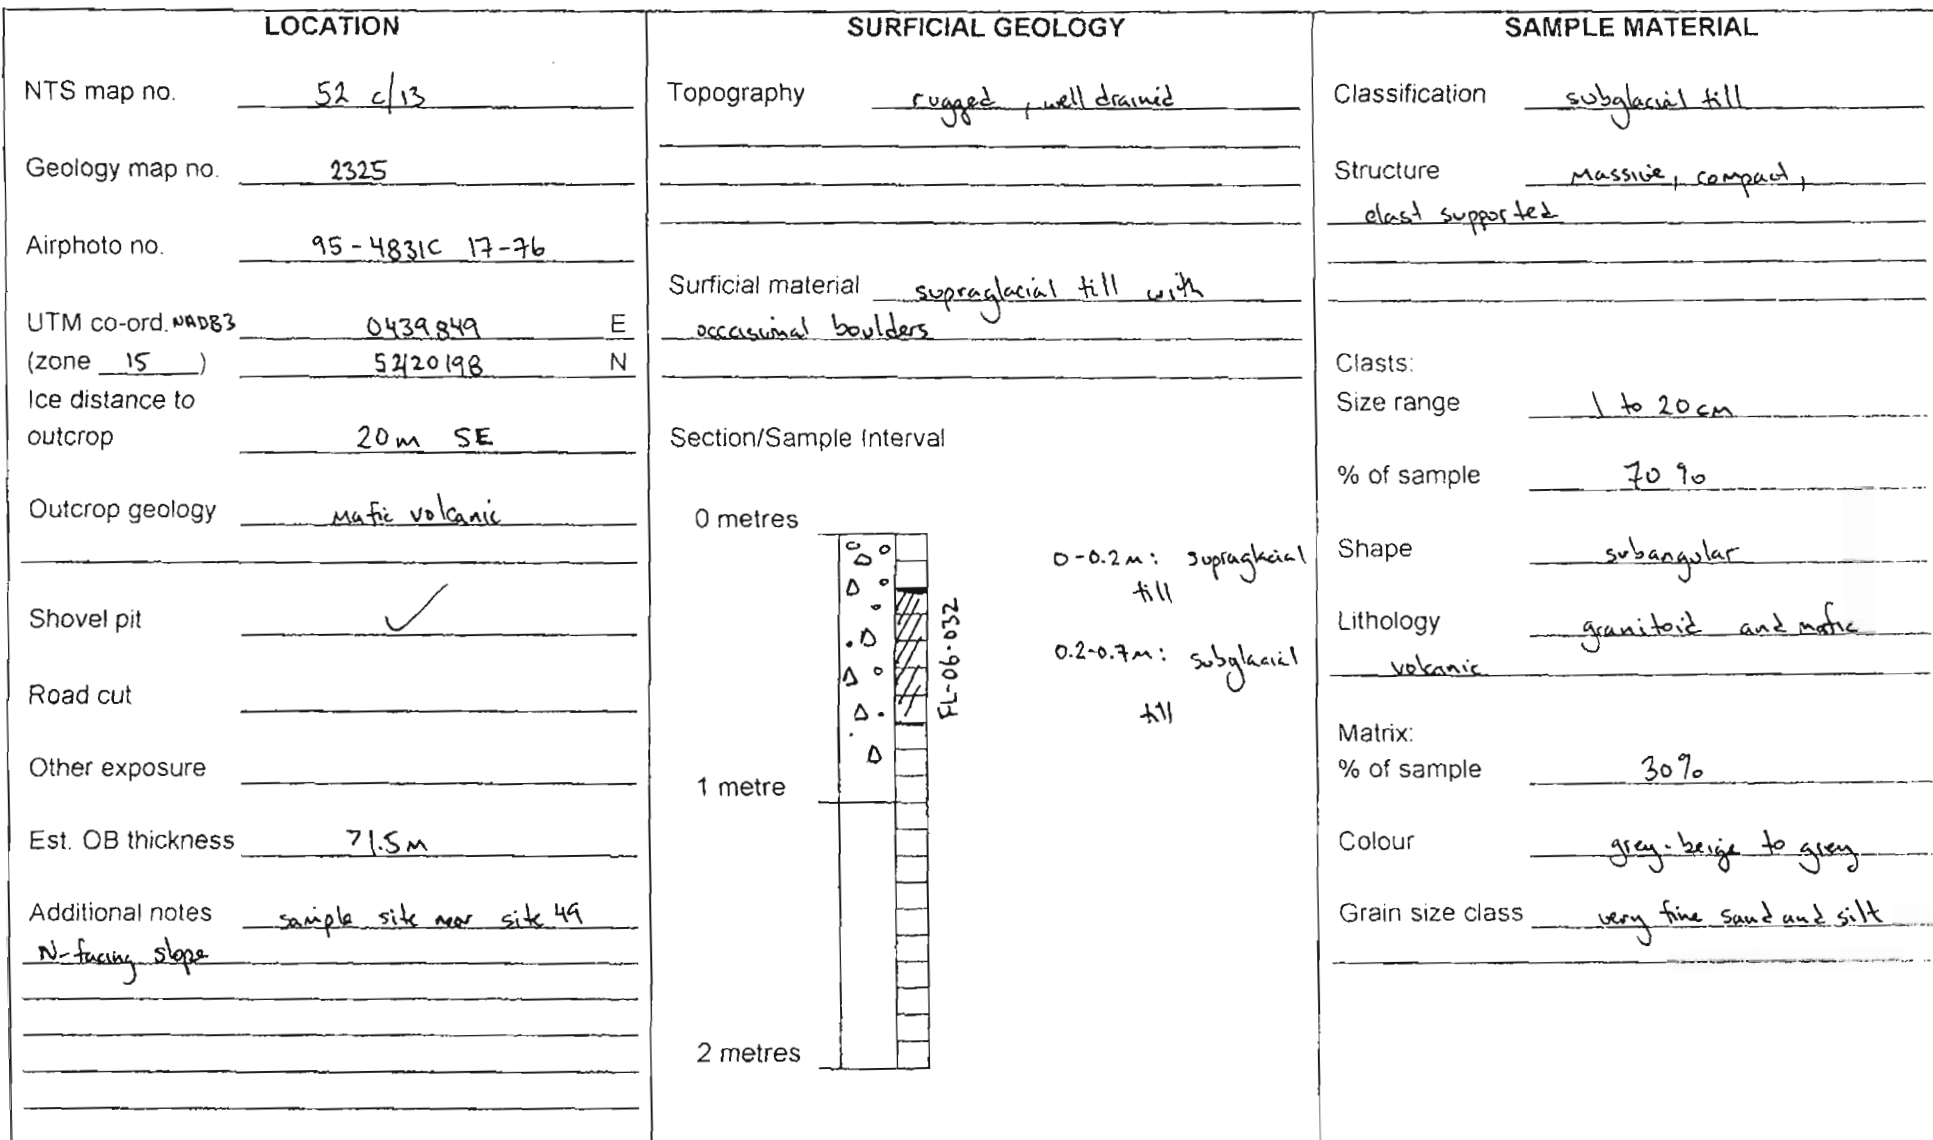 LOCATION
NTS map no. 52 c/13
Geology map no. 2325
Airphoto no. 95-4831C 17-76
UTM co-ord. NAD83 0439849 E
(zone 15) 5420198 N
Ice distance to
outcrop 20m SE
Outcrop geology Mafic volcanic
Shovel pit ✓
Road cut
Other exposure
Est. OB thickness >1.5m
Additional notes sample site near site 49
N-facing slope
SURFICIAL GEOLOGY
Topography rugged, well drained
Surficial material supraglacial till with
occasional boulders
Section/Sample Interval
0 metres
0-0.2m: supraglacial
till
FL-06-032
0.2-0.7m: subglacial
till
1 metre
2 metres
SAMPLE MATERIAL
Classification subglacial till
Structure Massive, compact,
clast supported
Clasts:
Size range 1 to 20cm
% of sample 70%
Shape subangular
Lithology granitoid and mafic
volcanic
Matrix:
% of sample 30%
Colour grey-beige to grey
Grain size class very fine sand and silt